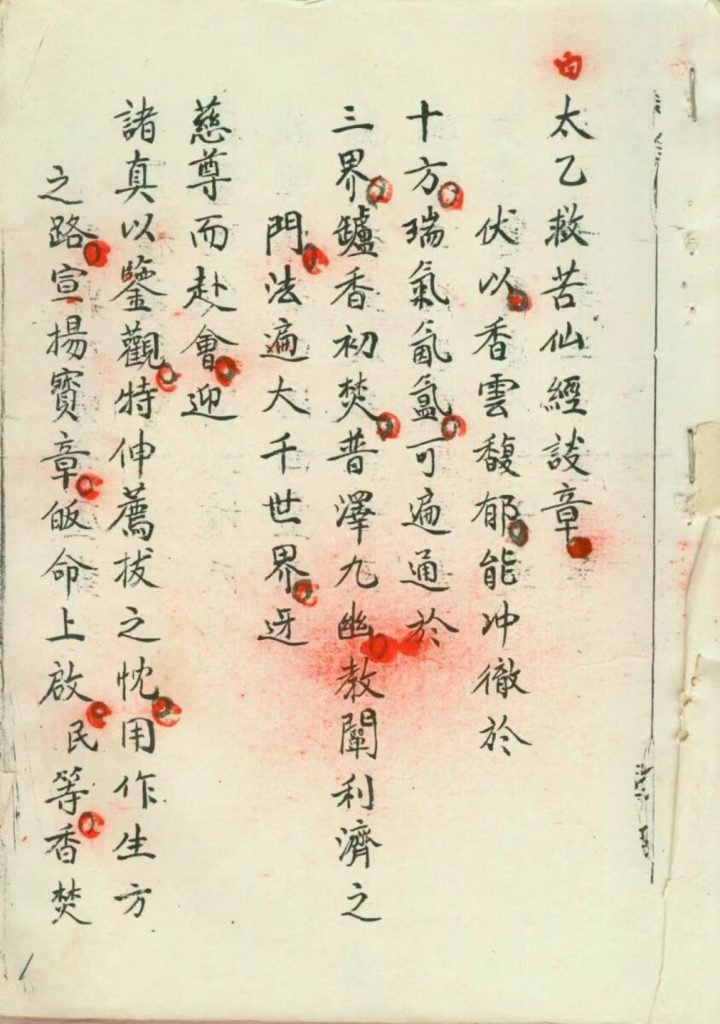 太乙救苦仙經談章
伏以香雲馥郁能冲徹於
十方瑞氣氤氳可遍通於
三界鑪香初焚普澤九幽教闡利濟之
門法遍大千世界迓
慈尊而赴會迎
諸真以鑒觀特伸薦拔之忱用作生方
之路宣揚寳章皈命上啟民等香焚